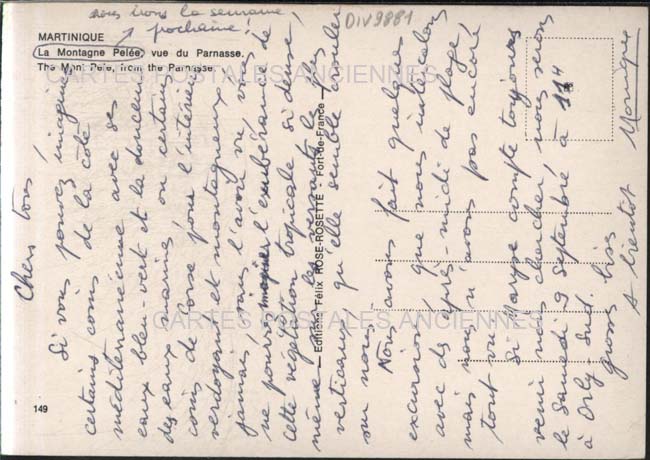 nous irons la semaine
prochaine!
DIV9881
MARTINIQUE
La Montagne Pelée, vue du Parnasse.
The Mont Pele, from the Parnasse.
CARTES POSTALES ANCIENNES
Chers tous!
Si vous pouvez imaginer
certains coins de la côte
méditerranéenne avec ses
eaux bleu-vert et la douceur
des eaux marines ou certains
coins de Corse pour l'intérieur
verdoyant et montagneux,
jamais, sans l'avoir vu, vous
ne pourrez imaginer l'exubérance de
cette végétation tropicale si dense,
même sur les versants les plus
verticaux qu'elle semble couler
sur nous.
Nous avons fait quelques
excursions que nous intercalons
avec des après-midi de plage
mais nous n'avons pas encore
tout vu
Si Maryse compte toujours
venir nous chercher, nous serons
le Samedi 9 Septembre à 11H
à Orly-Sud.
gross bises
A bientôt
Monique
Editions Félix ROSE-ROSETTE - Fort-de-France
CARTES POSTALES ANCIENNES
149